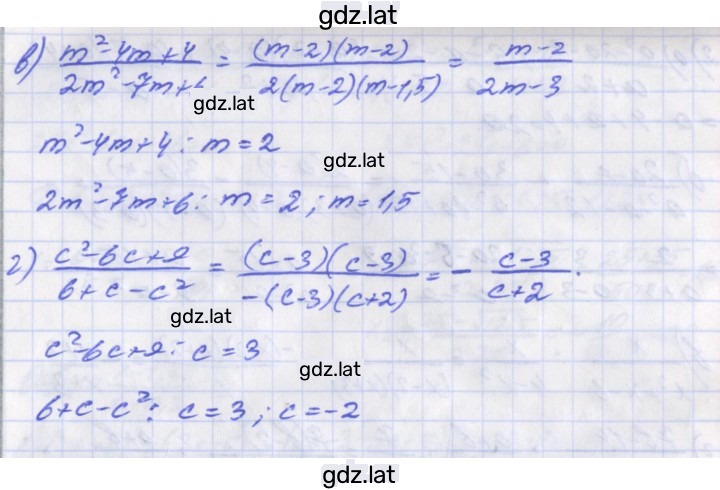 gdz.lat
в) (m²-4m+4)/(2m²-7m+6) = (m-2)(m-2)/2(m-2)(m-1,5) = (m-2)/(2m-3)
gdz.lat
m²-4m+4: m=2
gdz.lat
2m²-7m+6: m=2; m=1,5
г) (c²-6c+9)/(6+c-c²) = (c-3)(c-3)/-(c-3)(c+2) = - (c-3)/(c+2).
gdz.lat
c²-6c+9: c=3
gdz.lat
6+c-c²: c=3; c=-2
gdz.lat